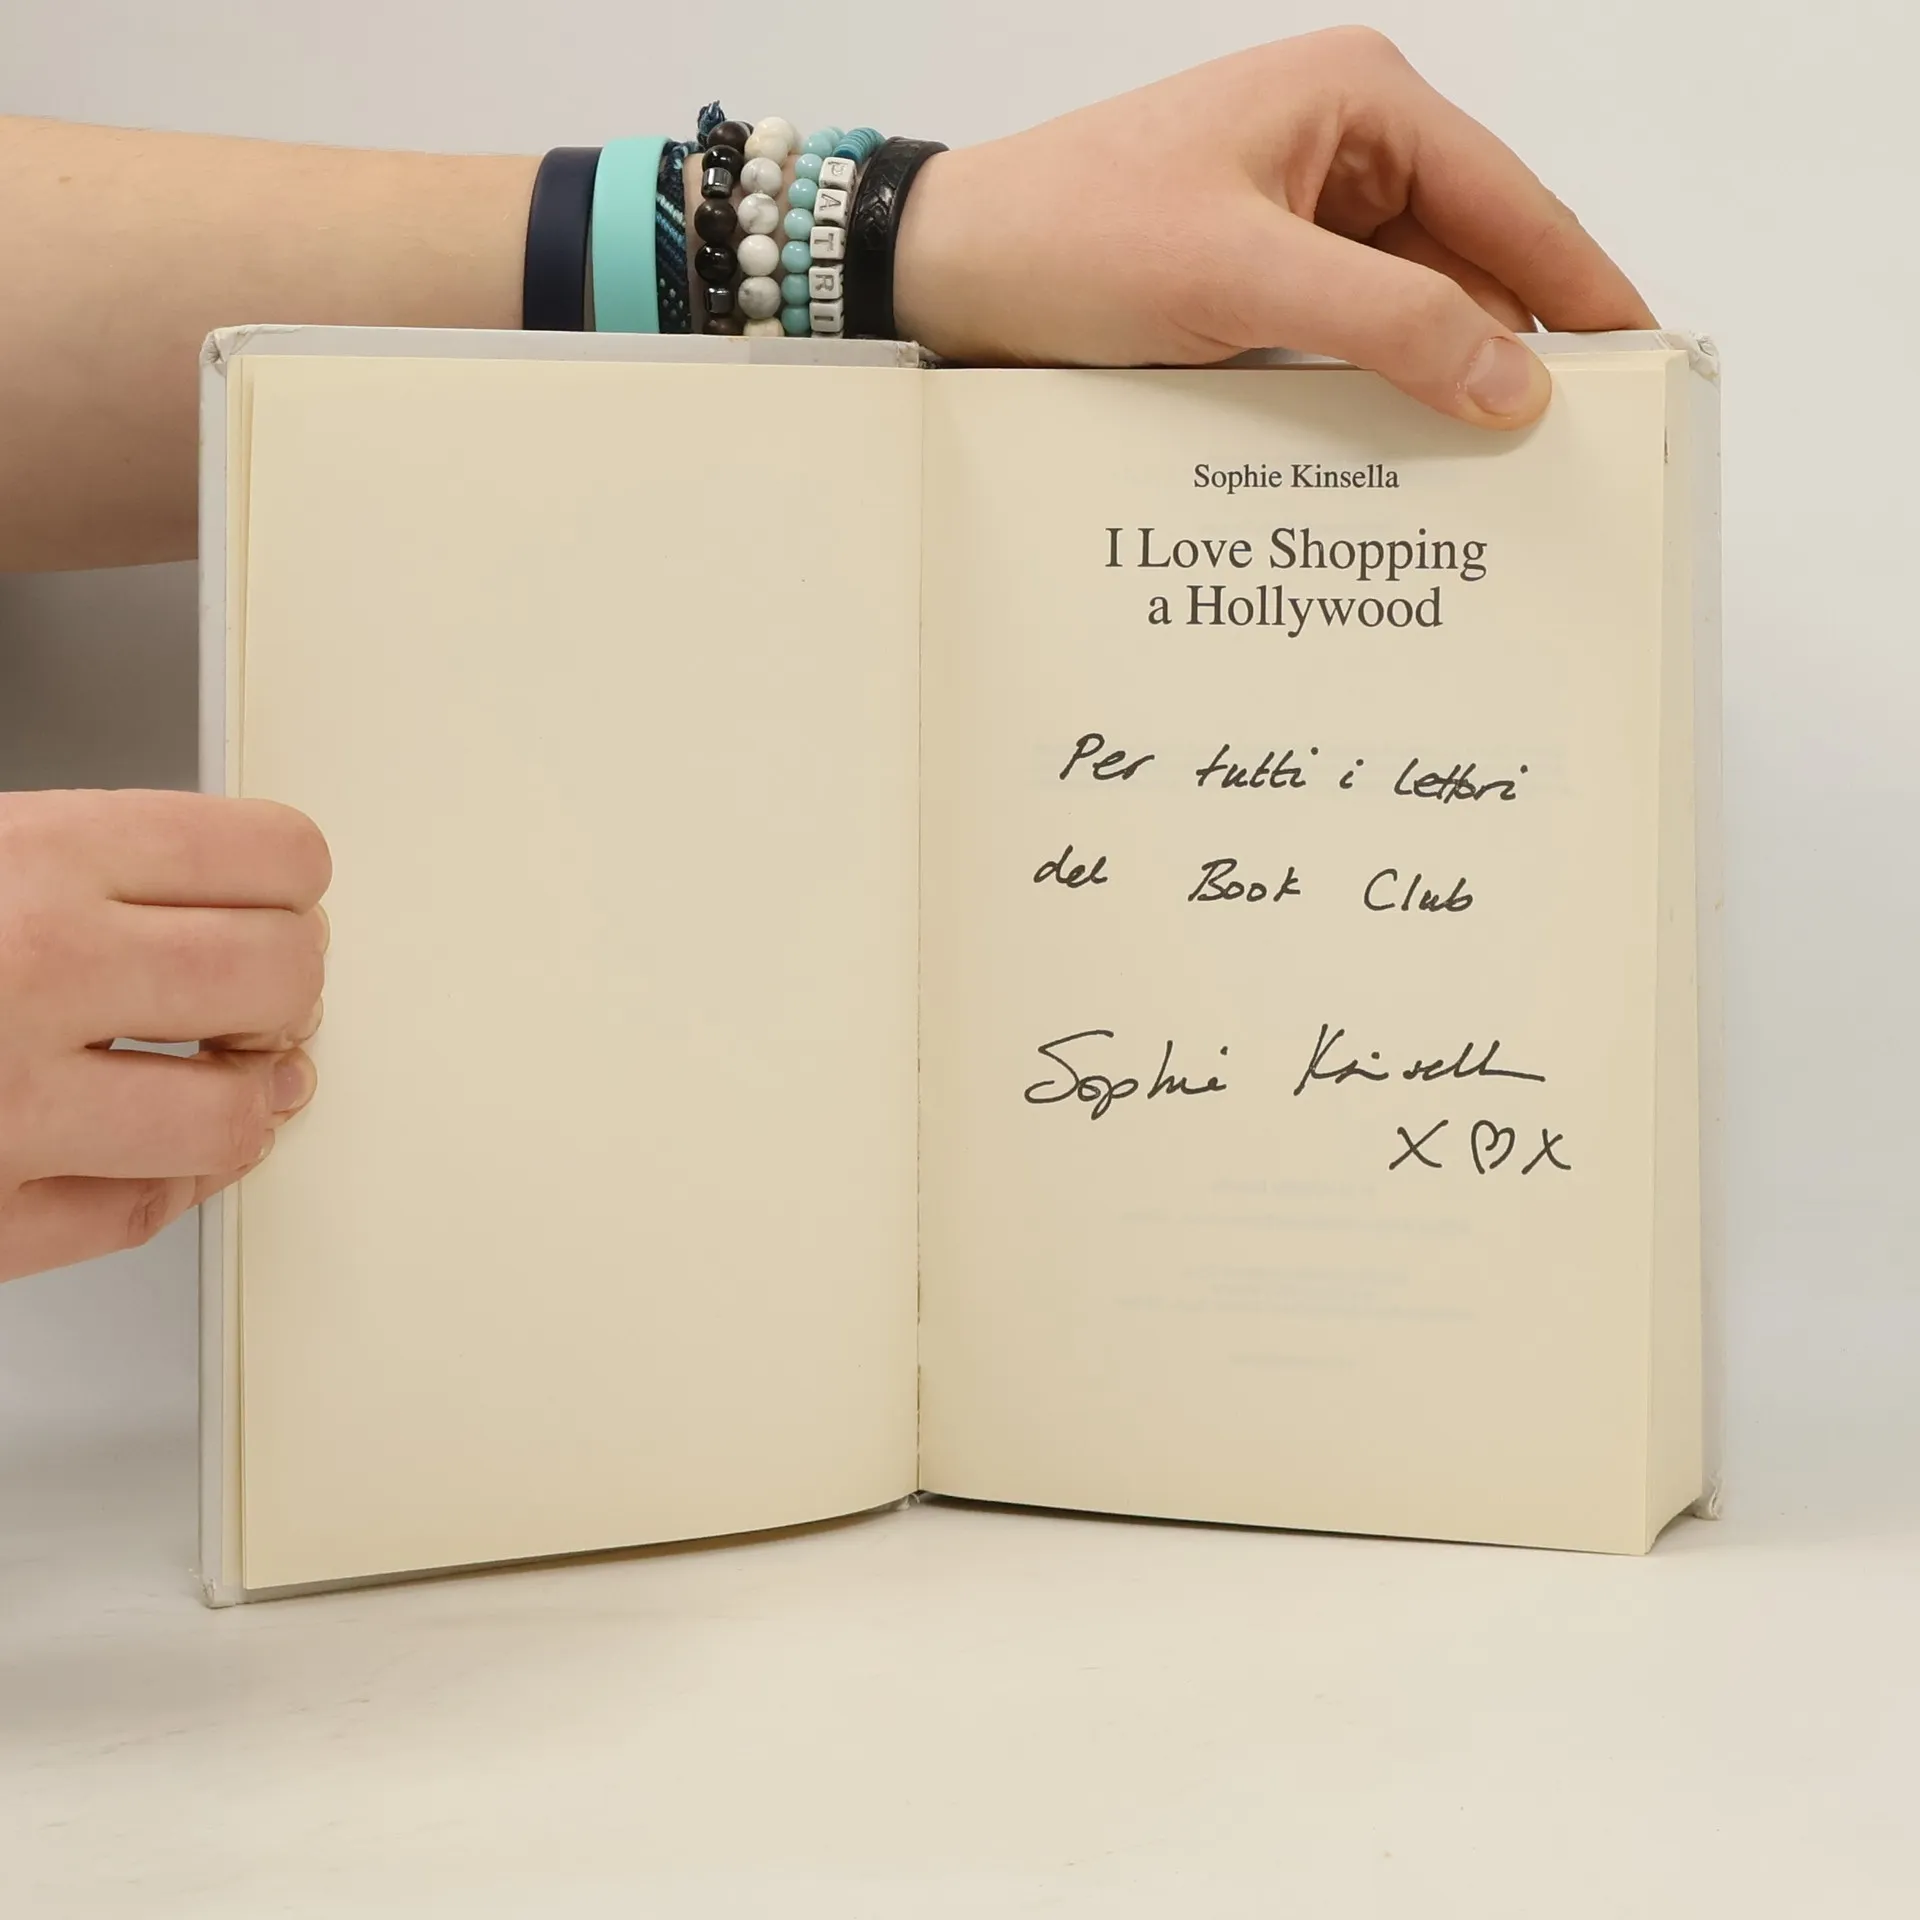 PATRI
Sophie Kinsella
I Love Shopping
a Hollywood
Per tutti i lettori
del Book Club
Sophie Kinsella
X ♡ X